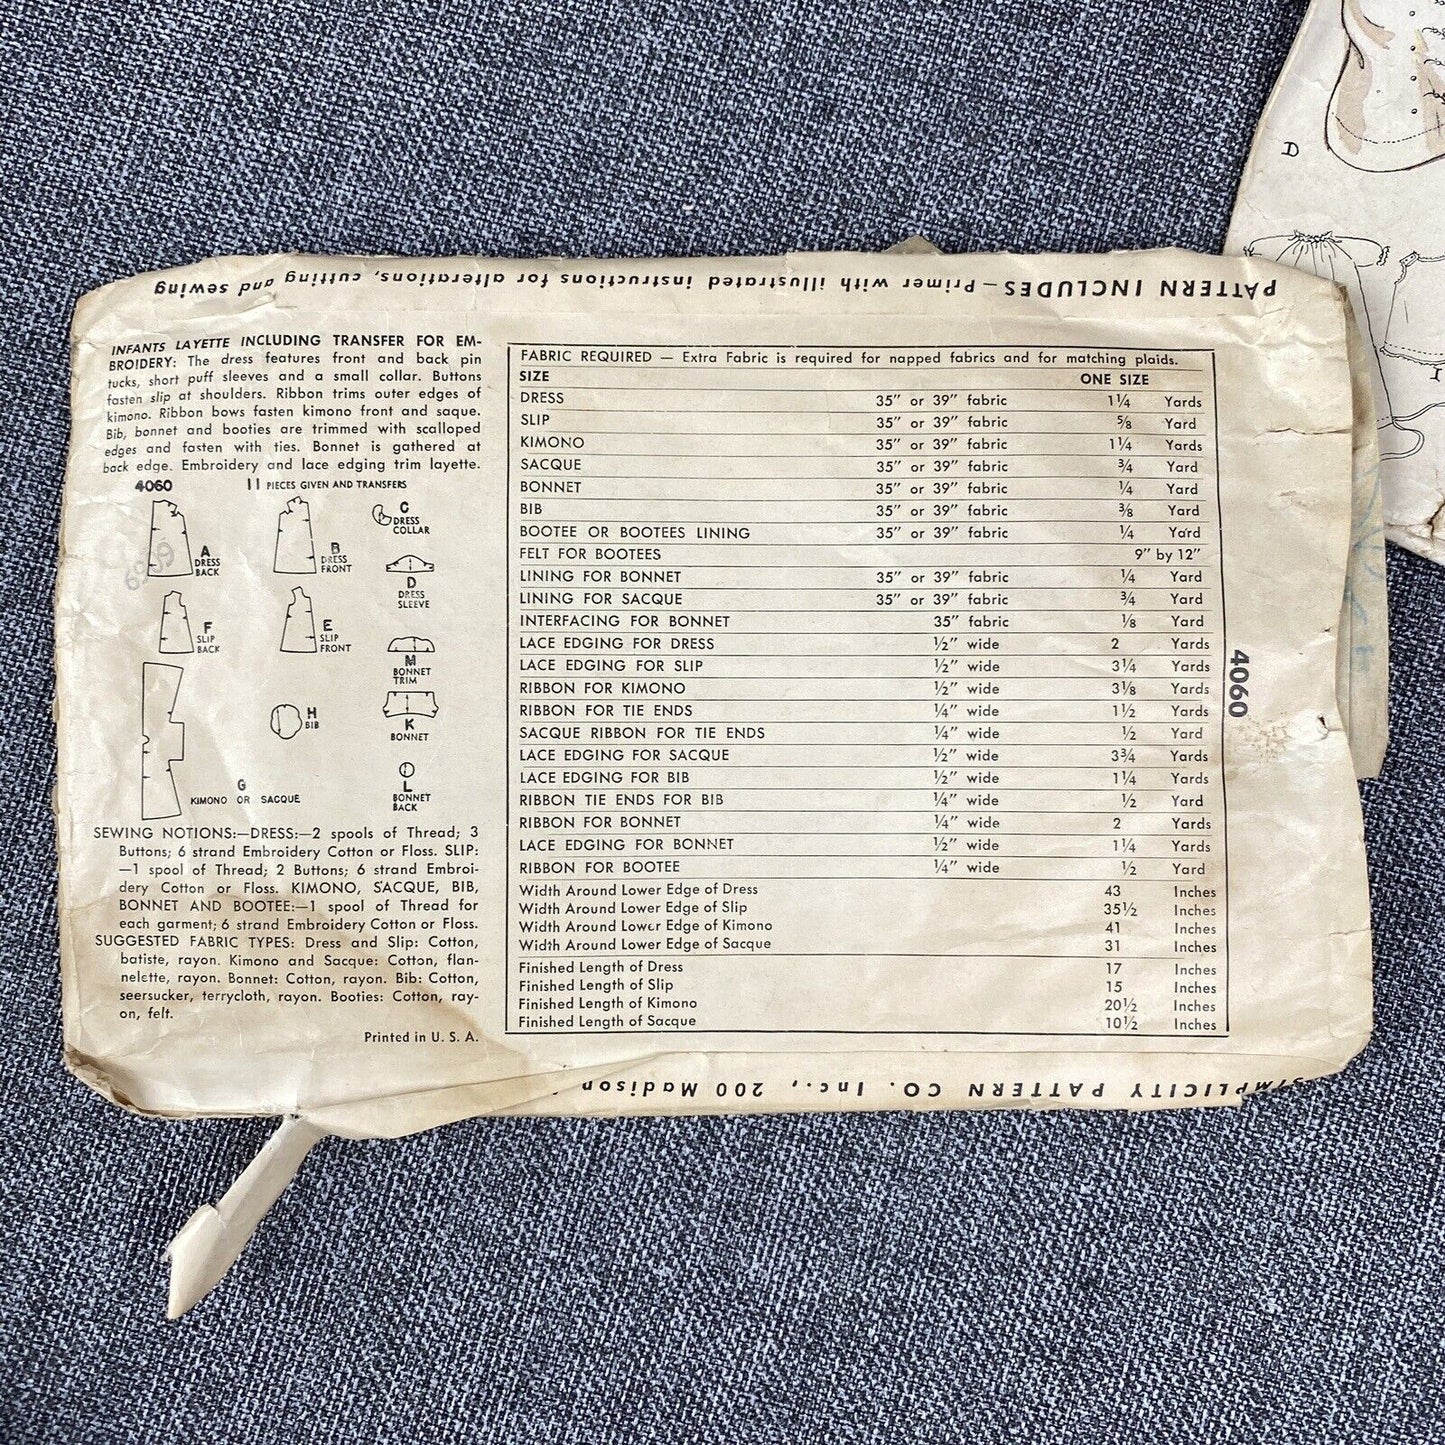 PATTERN INCLUDES—Primer with illustrated instructions for alterations, cutting and sewing
INFANTS LAYETTE INCLUDING TRANSFER FOR EM-
BROIDERY: The dress features front and back pin
tucks, short puff sleeves and a small collar. Buttons
fasten slip at shoulders. Ribbon trims outer edges of
kimono. Ribbon bows fasten kimono front and saque.
Bib, bonnet and booties are trimmed with scalloped
edges and fasten with ties. Bonnet is gathered at
back edge. Embroidery and lace edging trim layette.
4060 11 PIECES GIVEN AND TRANSFERS
A
DRESS
BACK
B
DRESS
FRONT
C
DRESS
COLLAR
D
DRESS
SLEEVE
F
SLIP
BACK
E
SLIP
FRONT
M
BONNET
TRIM
H
BIB
K
BONNET
G
KIMONO OR SACQUE
L
BONNET
BACK
SEWING NOTIONS:—DRESS:—2 spools of Thread; 3
Buttons; 6 strand Embroidery Cotton or Floss. SLIP:
—1 spool of Thread; 2 Buttons; 6 strand Embroi-
dery Cotton or Floss. KIMONO, SACQUE, BIB,
BONNET AND BOOTEE:—1 spool of Thread for
each garment; 6 strand Embroidery Cotton or Floss.
SUGGESTED FABRIC TYPES: Dress and Slip: Cotton,
batiste, rayon. Kimono and Sacque: Cotton, flan-
nelette, rayon. Bonnet: Cotton, rayon. Bib: Cotton,
seersucker, terrycloth, rayon. Booties: Cotton, ray-
on, felt.
Printed in U. S. A.
FABRIC REQUIRED — Extra Fabric is required for napped fabrics and for matching plaids.
SIZE ONE SIZE
DRESS 35" or 39" fabric 1¼ Yards
SLIP 35" or 39" fabric ⅝ Yard
KIMONO 35" or 39" fabric 1¼ Yards
SACQUE 35" or 39" fabric ¾ Yard
BONNET 35" or 39" fabric ¼ Yard
BIB 35" or 39" fabric ⅜ Yard
BOOTEE OR BOOTEES LINING 35" or 39" fabric ¼ Yard
FELT FOR BOOTEES 9" by 12"
LINING FOR BONNET 35" or 39" fabric ¼ Yard
LINING FOR SACQUE 35" or 39" fabric ¾ Yard
INTERFACING FOR BONNET 35" fabric ⅛ Yard
LACE EDGING FOR DRESS ½" wide 2 Yards
LACE EDGING FOR SLIP ½" wide 3¼ Yards
RIBBON FOR KIMONO ½" wide 3⅛ Yards
RIBBON FOR TIE ENDS ¼" wide 1½ Yards
SACQUE RIBBON FOR TIE ENDS ¼" wide ½ Yard
LACE EDGING FOR SACQUE ½" wide 3¾ Yards
LACE EDGING FOR BIB ½" wide 1¼ Yards
RIBBON TIE ENDS FOR BIB ¼" wide ½ Yard
RIBBON FOR BONNET ¼" wide 2 Yards
LACE EDGING FOR BONNET ½" wide 1¼ Yards
RIBBON FOR BOOTEE ¼" wide ½ Yard
Width Around Lower Edge of Dress 43 Inches
Width Around Lower Edge of Slip 35½ Inches
Width Around Lower Edge of Kimono 41 Inches
Width Around Lower Edge of Sacque 31 Inches
Finished Length of Dress 17 Inches
Finished Length of Slip 15 Inches
Finished Length of Kimono 20½ Inches
Finished Length of Sacque 10½ Inches
4060
SIMPLICITY PATTERN CO. Inc., 200 Madison
D
I